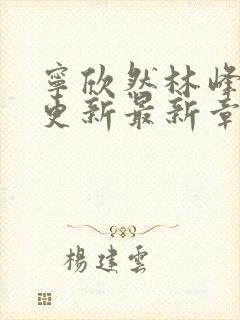 寧欣然林峰
更新最新章
楊建雲